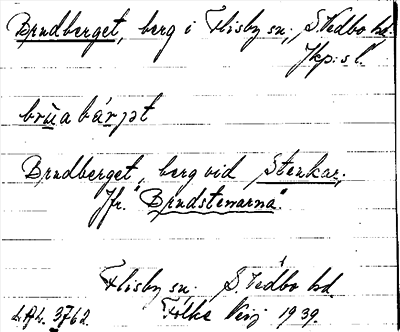 Brudberget, berg i Flisby sn, S. Vedbo hd,
Jkp:s l.
brùabárjət
Brudberget, berg vid Stenkar,
Jfr. "Brudstenarna".
Flisby sn. S. Vedbo hd.
Folke 1939.
3762